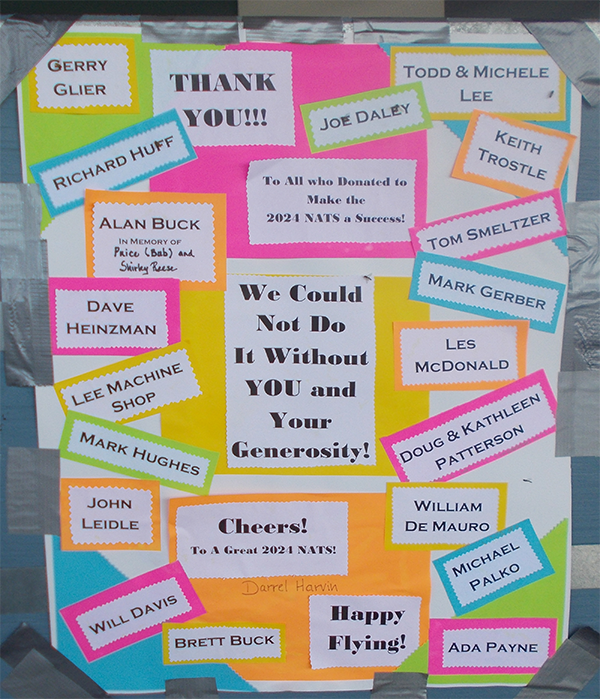 GERRY
GLIER
THANK
YOU!!!
TODD & MICHELE
LEE
JOE DALEY
RICHARD HUFF
KEITH
TROSTLE
To All who Donated to
Make the
2024 NATS a Success!
ALAN BUCK
IN MEMORY OF
Price (Bab) and
Shirley Reese
TOM SMELTZER
MARK GERBER
DAVE
HEINZMAN
We Could
Not Do
It Without
YOU and
Your
Generosity!
LES
MCDONALD
LEE MACHINE
SHOP
DOUG & KATHLEEN
PATTERSON
MARK HUGHES
JOHN
LEIDLE
Cheers!
To A Great 2024 NATS!
WILLIAM
DE MAURO
MICHAEL
PALKO
Darrel Harvin
WILL DAVIS
Happy
Flying!
BRETT BUCK
ADA PAYNE